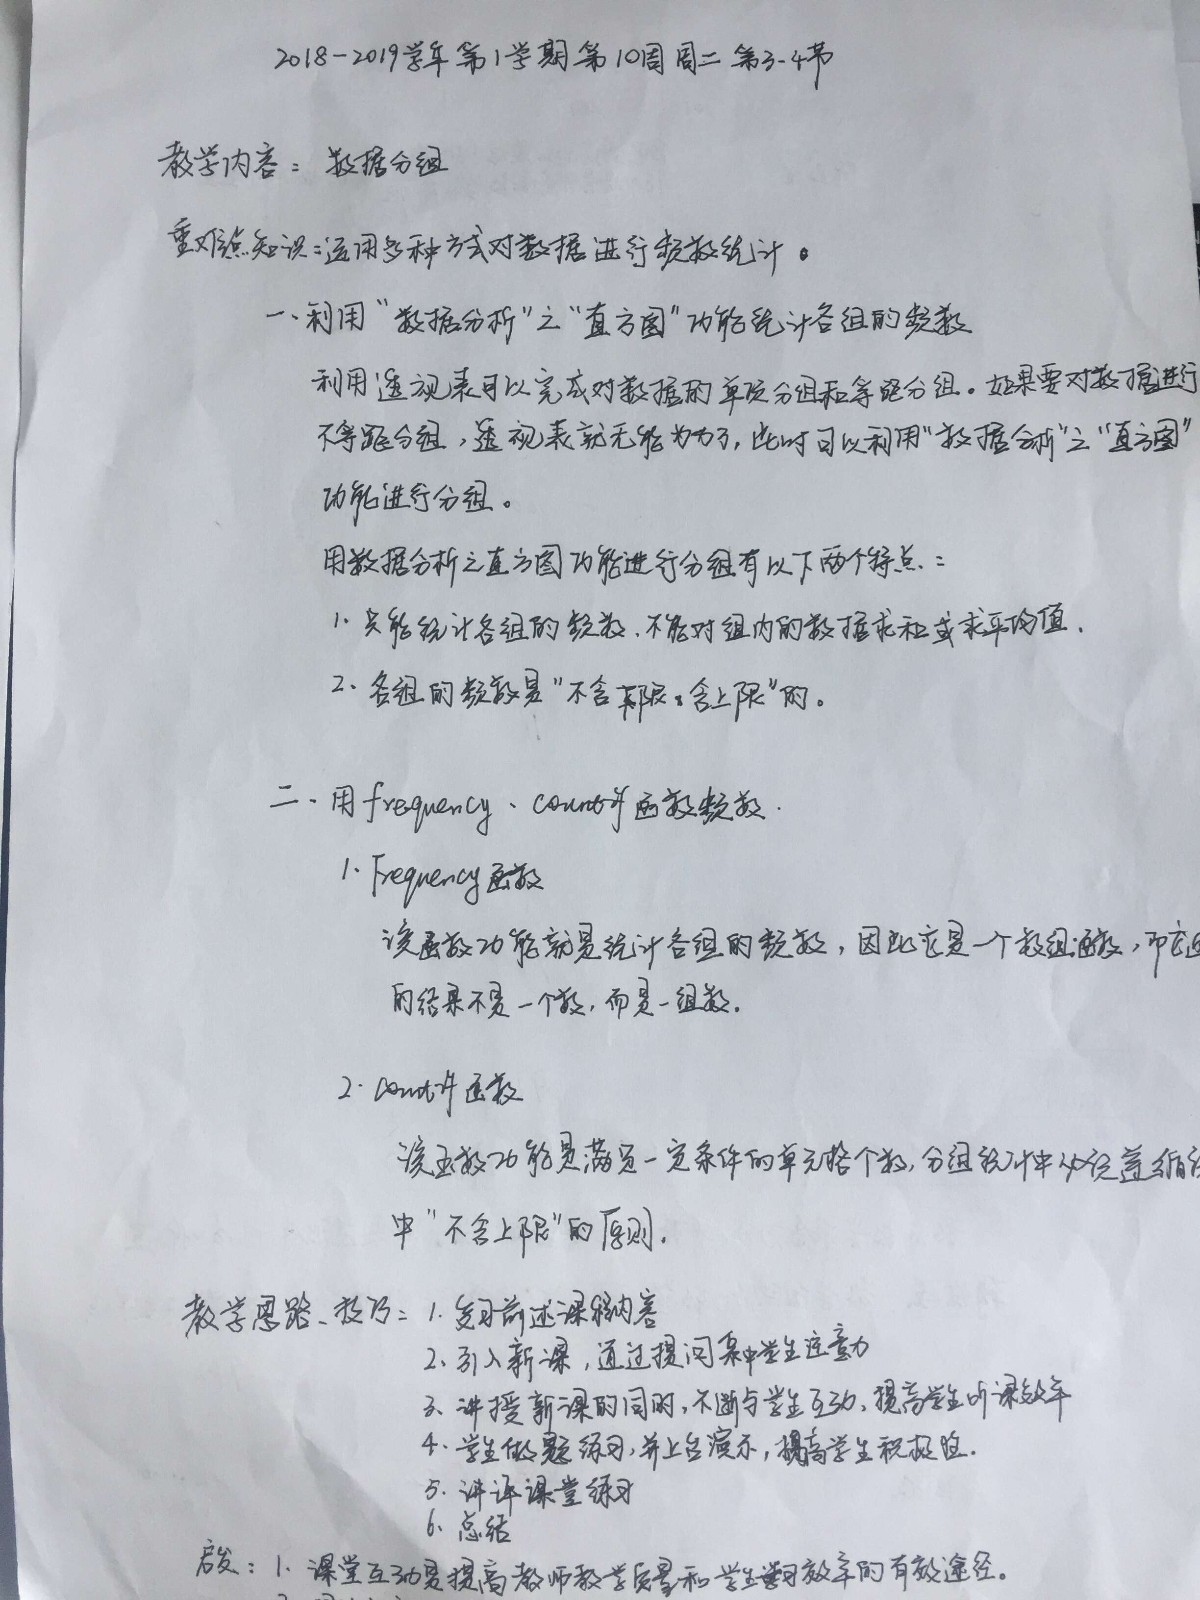 2018-2019学年第1学期第10周周二 第3-4节
教学内容: 数据分组
重难点知识:运用多种方式对数据进行频数统计。
一、利用“数据分析”之“直方图”功能统计各组的频数
利用透视表可以完成对数据的单项分组和等距分组。如果要对数据进行
不等距分组,透视表就无能为力了,此时可以利用“数据分析”之“直方图”
功能进行分组。
用数据分析之直方图功能进行分组有以下两个特点:
1. 只能统计各组的频数,不能对组内的数据求和或求平均值.
2. 各组的频数是“不含下限,含上限”的。
二、用frequency、countif函数频数.
1. Frequency函数
该函数功能就是统计各组的频数,因此它是一个数组函数,即它返
的结果不是一个数,而是一组数.
2. countif函数
该函数功能是满足一定条件的单元格个数,分组统计中必须遵循统
中“不含上限”的原则.
教学思路、技巧: 1. 复习前述课程内容
2. 引入新课,通过提问集中学生注意力
3. 讲授新课的同时,不断与学生互动,提高学生听课效率
4. 学生做题练习,并上台演示,提高学生积极性.
5. 讲评课堂练习
6. 总结
启发: 1. 课堂互动是提高教师教学质量和学生学习效率的有效途径。